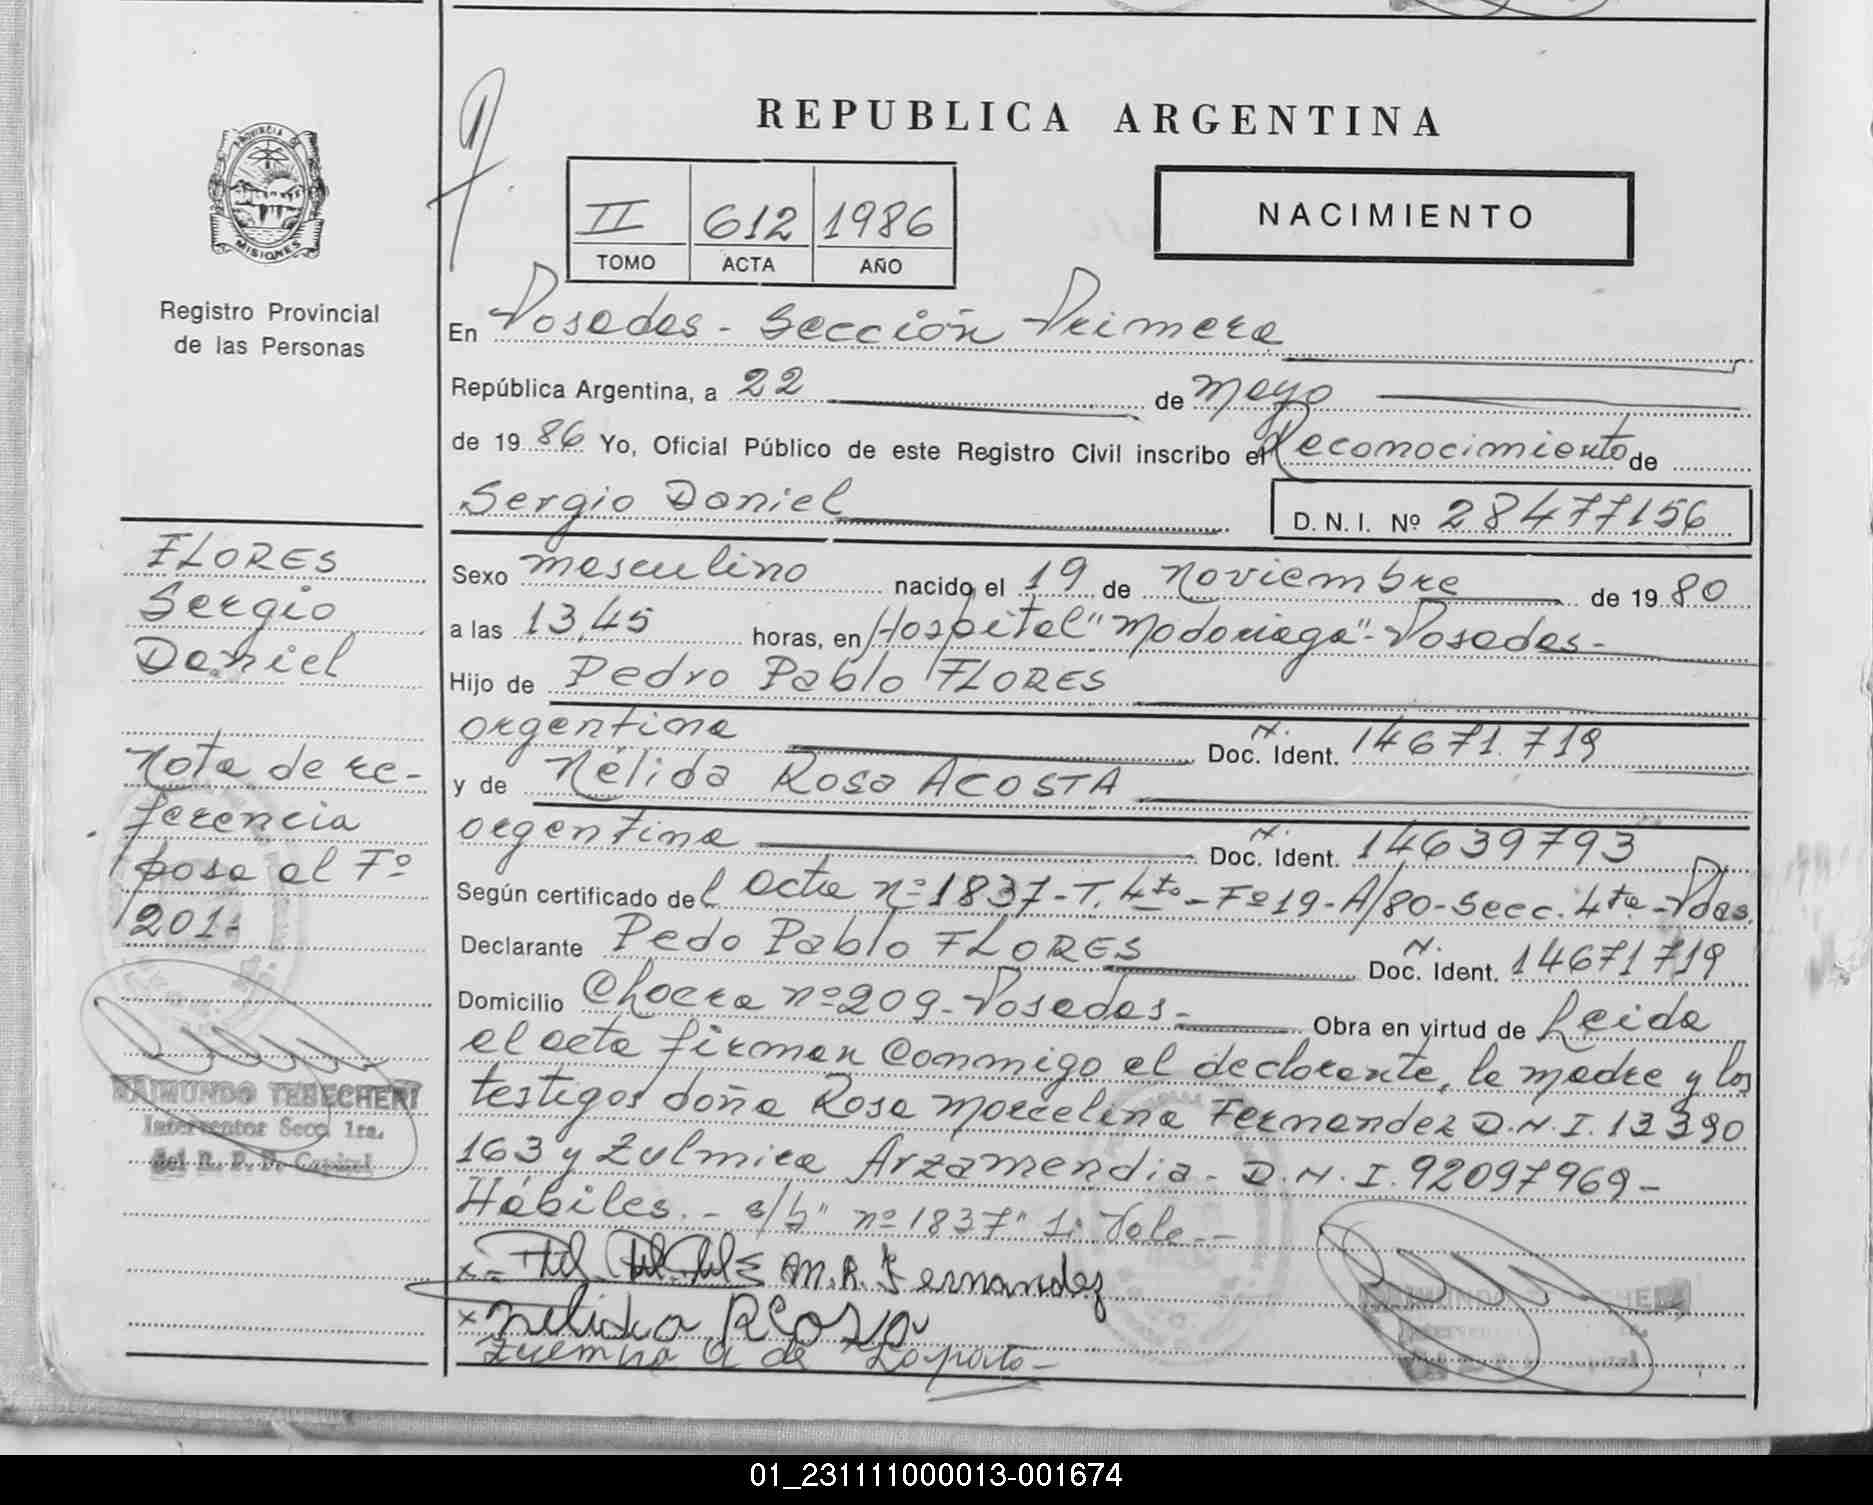 REPUBLICA ARGENTINA
PROVINCIA DE
MISIONES
Registro Provincial
de las Personas
II 612 1986
TOMO ACTA AÑO
NACIMIENTO
En Posadas - Sección Primera
República Argentina, a 22 de mayo
de 19 86 Yo, Oficial Público de este Registro Civil inscribo el Reconocimiento de
Sergio Daniel D. N. I. Nº 28477156
Sexo masculino nacido el 19 de noviembre de 19 80
a las 13,45 horas, en Hospital "Madariaga" - Posadas -
Hijo de Pedro Pablo FLORES
argentina Doc. N. Ident. 14671.719
y de Nélida Rosa ACOSTA
argentina Doc. N. Ident. 14639793
Según certificado del acta nº 1837 - T. 4to - Fº 19 - A/80 - Secc. 4ta - Pdas.
Declarante Pedo Pablo FLORES Doc. N. Ident. 14671719
Domicilio Chacra nº 209 - Posadas - Obra en virtud de Leida
el acta firman Conmigo el declarante, la madre y los
testigos doña Rosa Marcelina Fernandez D.N.I. 13390
163 y Zulmira Arzamendia - D.N.I. 92097969 -
Hábiles. - s/b "nº 1837" Si Vale --
M.R. Fernandez
x Nelida Acosta
FLORES
Sergio
Daniel
Nota de re-
ferencia
pasa al Fº
201-
RAIMUNDO TEBECHERI
Interventor Secc. 1ra.
del R. P. P. Capital
01_231111000013-001674